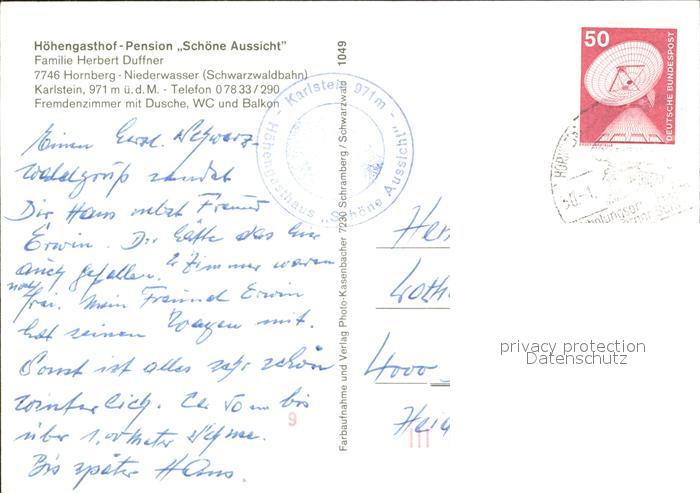 Höhengasthof-Pension „Schöne Aussicht"
Familie Herbert Duffner
7746 Hornberg - Niederwasser (Schwarzwaldbahn)
Karlstein, 971 m ü. d. M. - Telefon 0 78 33 / 290
Fremdenzimmer mit Dusche, WC und Balkon
Einen Schwarz-
waldgruß sendet
Dir Hans nebst Freund
Erwin. Dir hätte das hier
auch gefallen. 2 Zimmer waren
noch frei. Mein Freund Erwin
hat seinen Wagen mit.
Sonst ist alles sehr schön
winterlich. Ca 50 cm bis
über 1,00 Meter
Bis später Hans.
9
Farbaufnahme und Verlag Photo-Kasenbacher 7230 Schramberg / Schwarzwald 1049
Karlstein 971m
Höhengasthaus „Schöne Aussicht"
50
DEUTSCHE BUNDESPOST
4000
privacy protection
Datenschutz